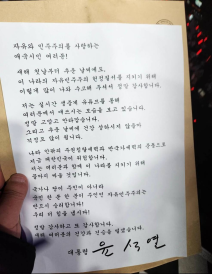 자유와 민주주의를 사랑하는
애국시민 여러분!
새해 첫날부터 추운 날씨에도,
이 나라의 자유민주주의와 헌정질서를 지키기 위해
이렇게 많이 나와 수고해 주셔서 정말 감사합니다.
저는 실시간 생중계 유튜브를 통해
여러분께서 애쓰시는 모습을 보고 있습니다.
정말 고맙고 안타깝습니다.
그리고 추운 날씨에 건강 상하시지 않을까
걱정도 많이 됩니다.
나라 안팎의 주권침탈세력과 반국가세력의 준동으로
지금 대한민국이 위험합니다.
저는 여러분과 함께 이 나라를 지키기 위해
끝까지 싸울 것입니다.
국가나 당이 주인이 아니라
국민 한 분 한 분이 주인인 자유민주주의는
반드시 승리합니다!
우리 더 힘을 냅시다!
정말 감사하고 또 감사합니다.
새해 여러분의 건강과 건승을 빌겠습니다.
대통령 윤석열